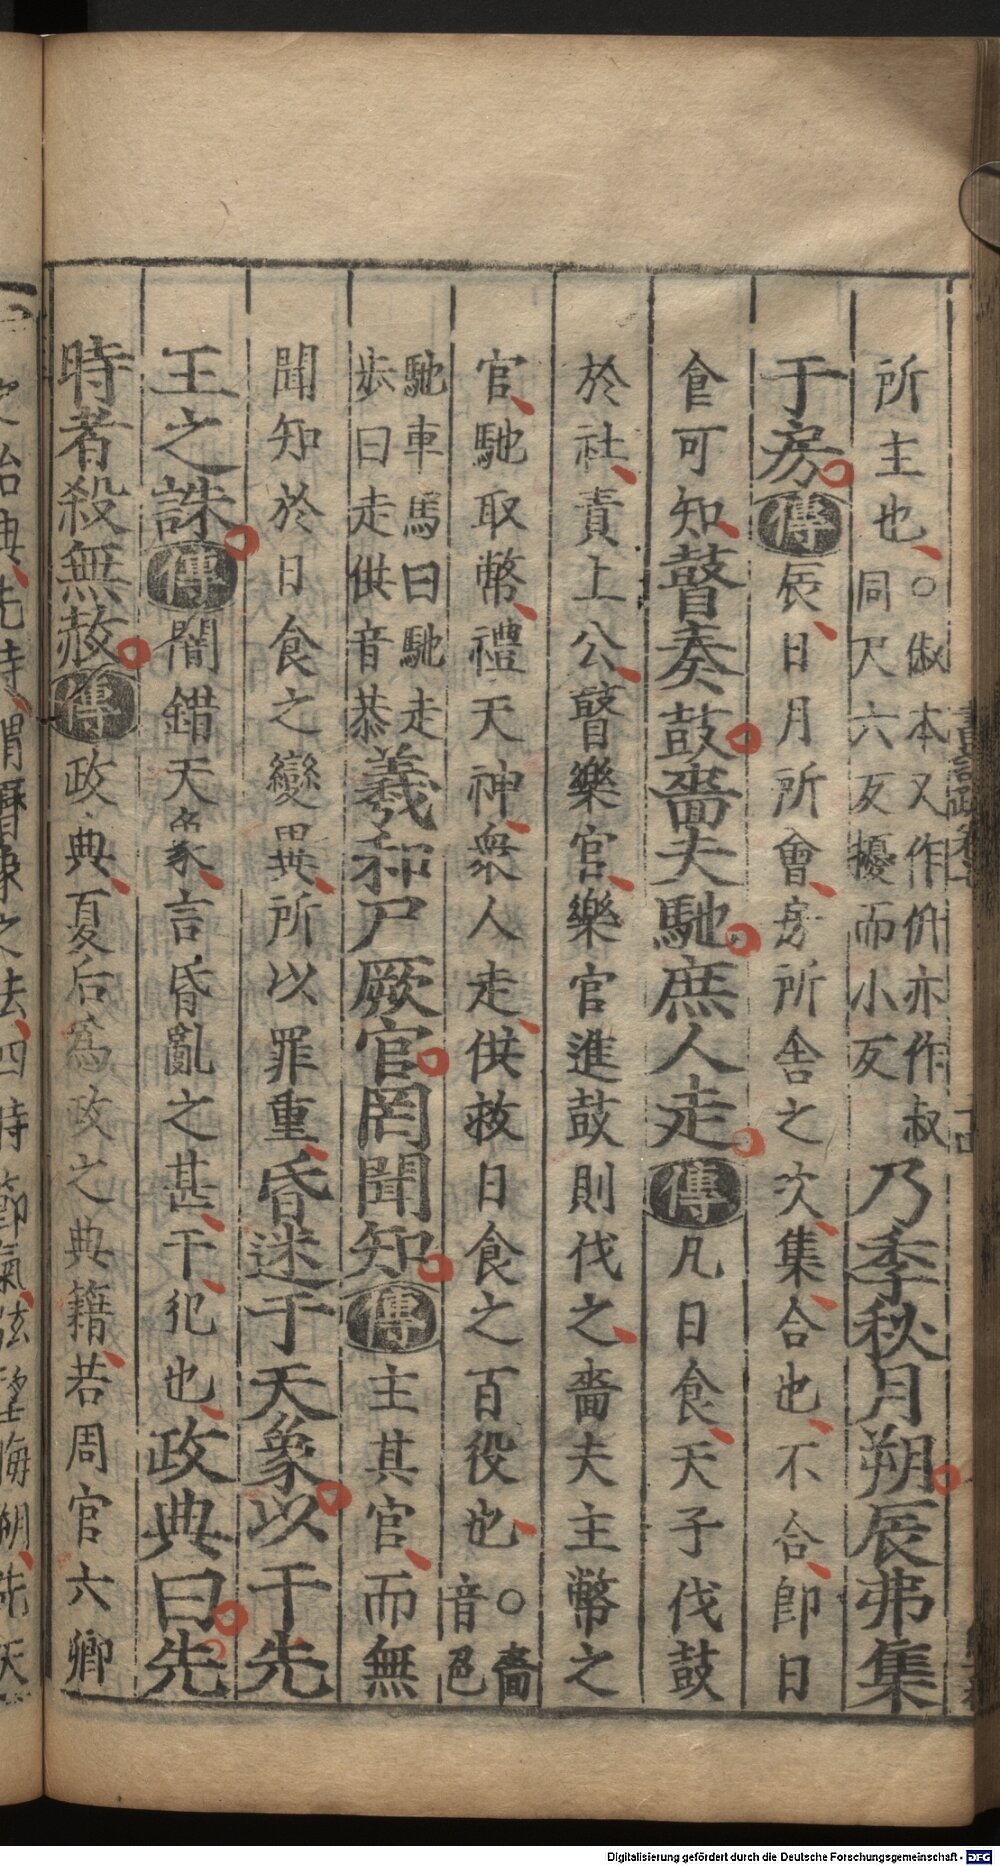 所主也○俶本又作俶亦作叔同尺六反擾而小反乃季秋月朔辰弗集
于房傳辰日月所會房所舍之次集合也不合即日
食可知瞽奏鼓嗇夫馳庶人走傳凡日食天子伐鼓
於社責上公瞽樂官樂官進鼓則伐之嗇夫主幣之
官馳取幣禮天神衆人走供救日食之百役也○嗇音色
馳車馬曰馳走步曰走供音恭羲和尸厥官罔聞知傳主其官而無
聞知於日食之變異所以罪重昏迷于天象以干先
王之誅傳闇錯天象言昏亂之甚干犯也政典曰先
時者殺無赦傳政典夏后爲政之典籍若周官六卿
之治典先時謂曆象之法四時節氣弦望晦朔先天
Digitalisierung gefördert durch die Deutsche Forschungsgemeinschaft - DFG